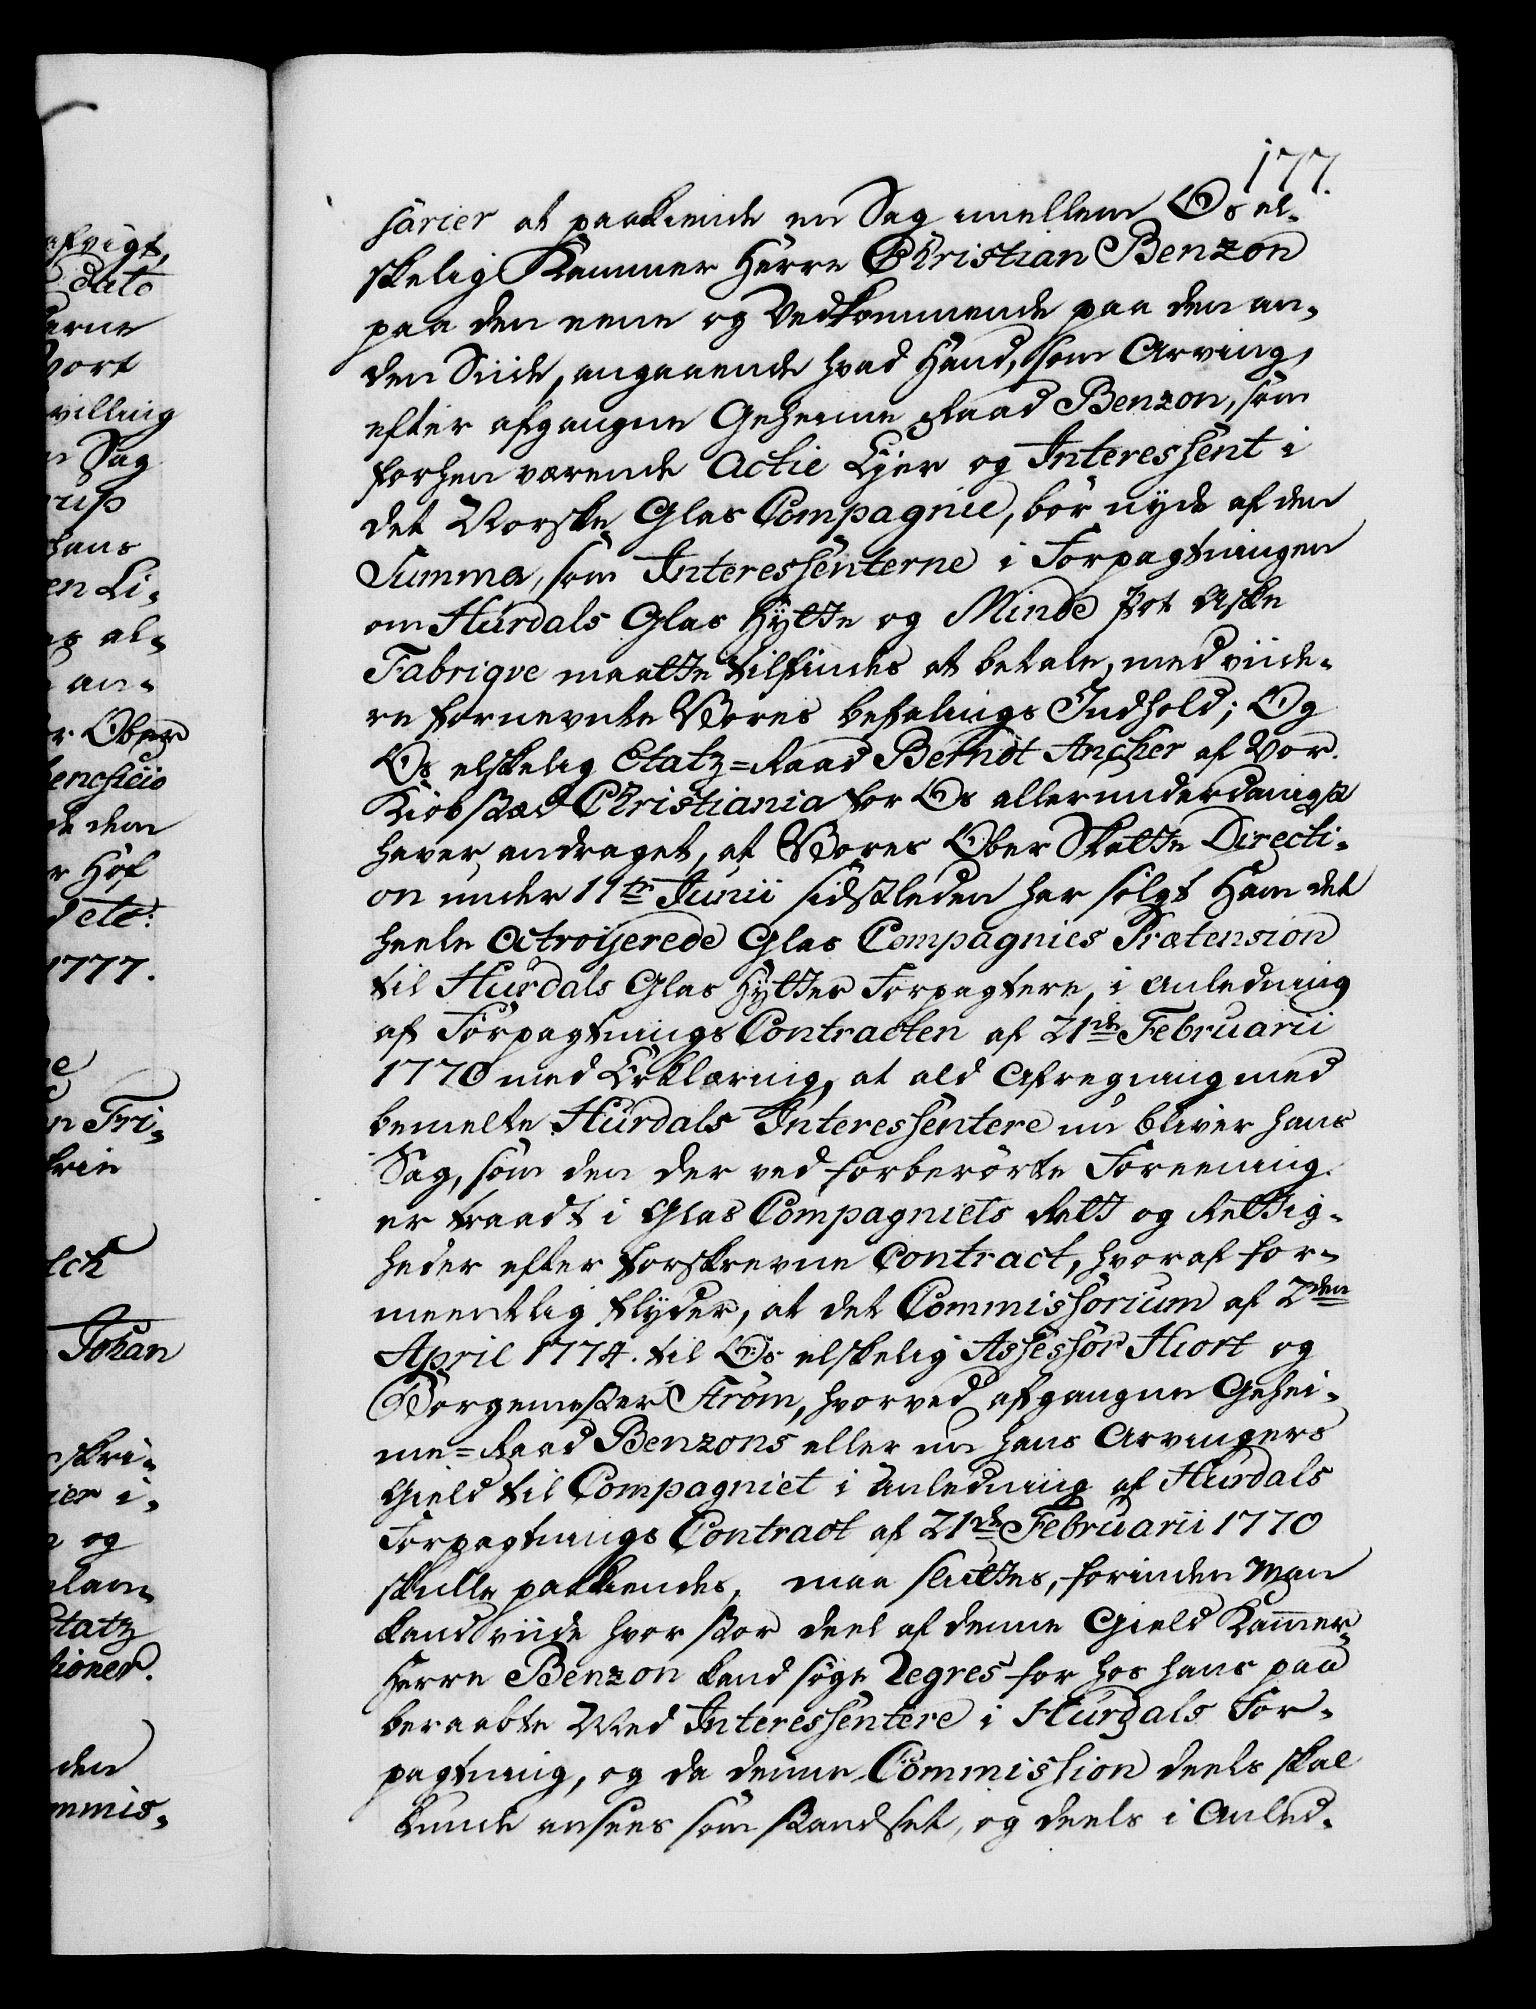 177.
sarier at paakiende en Sag imellem Os el-
skelig Kammer Herre Christian Benzon
paa den eene og Vedkommende paa den an-
den Siide, angaaende hvad Hand, som Arving,
efter afgangne Geheime Raad Benzon, som
forhen værende Actie Ejer og Interessent i
det Norske Glas Compagnie, bör nyde af den
Summa, som Interessenterne i Forpagtningen
om Hurdals Glas Hytte og Minde Pot Aske
Fabriqve maatte tilfindes at betale, med viide-
re fornevnte Vores befalings Indhold; Og
Os elskelig Etatz-Raad Berndt Ancher af Vor
Kiöbsted Christiania for Os allerunderdanigst
haver andraget, at Vores Ober Skatte Directi-
on under 11te Junii sidstleden har solgt Ham det
heele Octroijerede Glas Compagnies Prætension
til Hurdals Glas Hyttes Forpagtere, i Anledning
af Forpagtnings Contracten af 21de Februarii
1770 med Erklæring, at ald Afregning med
bemelte Hurdals Interessentere nu bliver hans
Sag, som den der ved forberörte Foreening
er traadt i Glas Compagniets Rett og Rettig-
heder efter forskrevne Contract, hvoraf for-
meentlig flyder, at det Commissorium af 2den
April 1774. til Os elskelig Assessor Hiort og
Borgemester Ström, hvorved afgangne Gehei-
me-Raad Benzons eller nu hans Arvingers
Gield til Compagniet i Anledning af Hurdals
Forpagtnings Contract af 21de Februarii 1770
skulle paakiendes, maa sluttes, forinden Man
kand viide hvor stor deel af denne Gield Kammer-
Herre Benzon kand söge Regres for hos hans paa
beraabte Med Interessentere i Hurdals For-
pagtning, og da denne Commission deels skal
kunde ansees som standset, og deels i Anled-